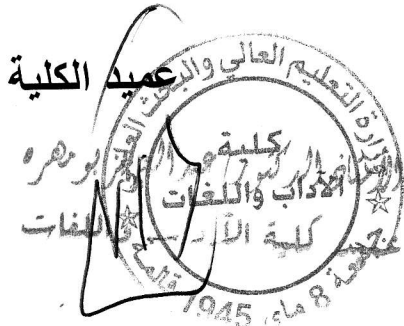 عميد الكلية
وزارة التعليم العالي والبحث العلمي
كلية
الآداب واللغات
كلية الآداب واللغات
جامعة 8 ماي 1945 قالمة